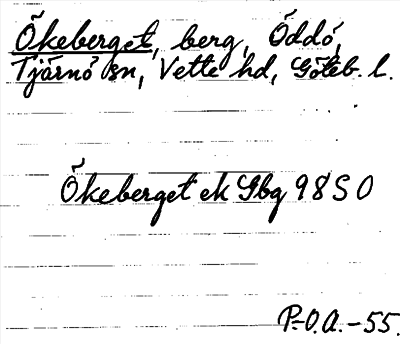 Ökeberget, berg, Öddö,
Tjärnö sn, Vette hd, Göteb. l.
Ökeberget ek Gbg 98 S O
P.O.A. -55.